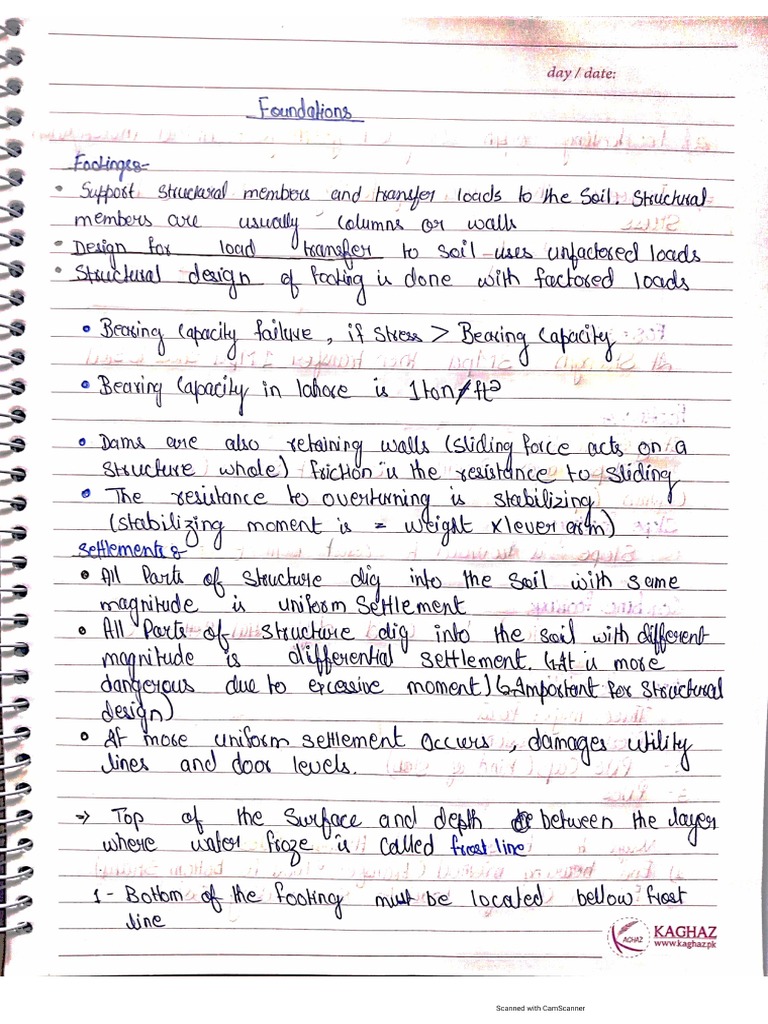 day / date:
Foundations
Footings:-
• Support structural members and transfer loads to the Soil. Structural
members are usually columns or walls
• Design for load transfer to soil uses unfactored loads
• Structural design of footing is done with factored loads
• Bearing Capacity failure, if stress > Bearing Capacity
• Bearing Capacity in lahore is 1 ton/ft²
• Dams are also retaining walls (sliding force acts on a
structure whole) friction is the resistance to sliding
• The resistance to overturning is stabilizing
(stabilizing moment is = weight x lever arm)
Settlements:-
• All Parts of structure dig into the soil with same
magnitude is uniform Settlement
• All Parts of structure dig into the soil with different
magnitude is differential settlement. (↳It is more
dangerous due to excessive moment) (↳Important for structural
design)
• If more uniform settlement occurs, damages utility
lines and door levels.
⇒ Top of the surface and depth between the layer
where water froze is called frost line
1 - Bottom of the footing must be located bellow frost
line
KAGHAZ
KAGHAZ
www.kaghaz.pk
Scanned with CamScanner